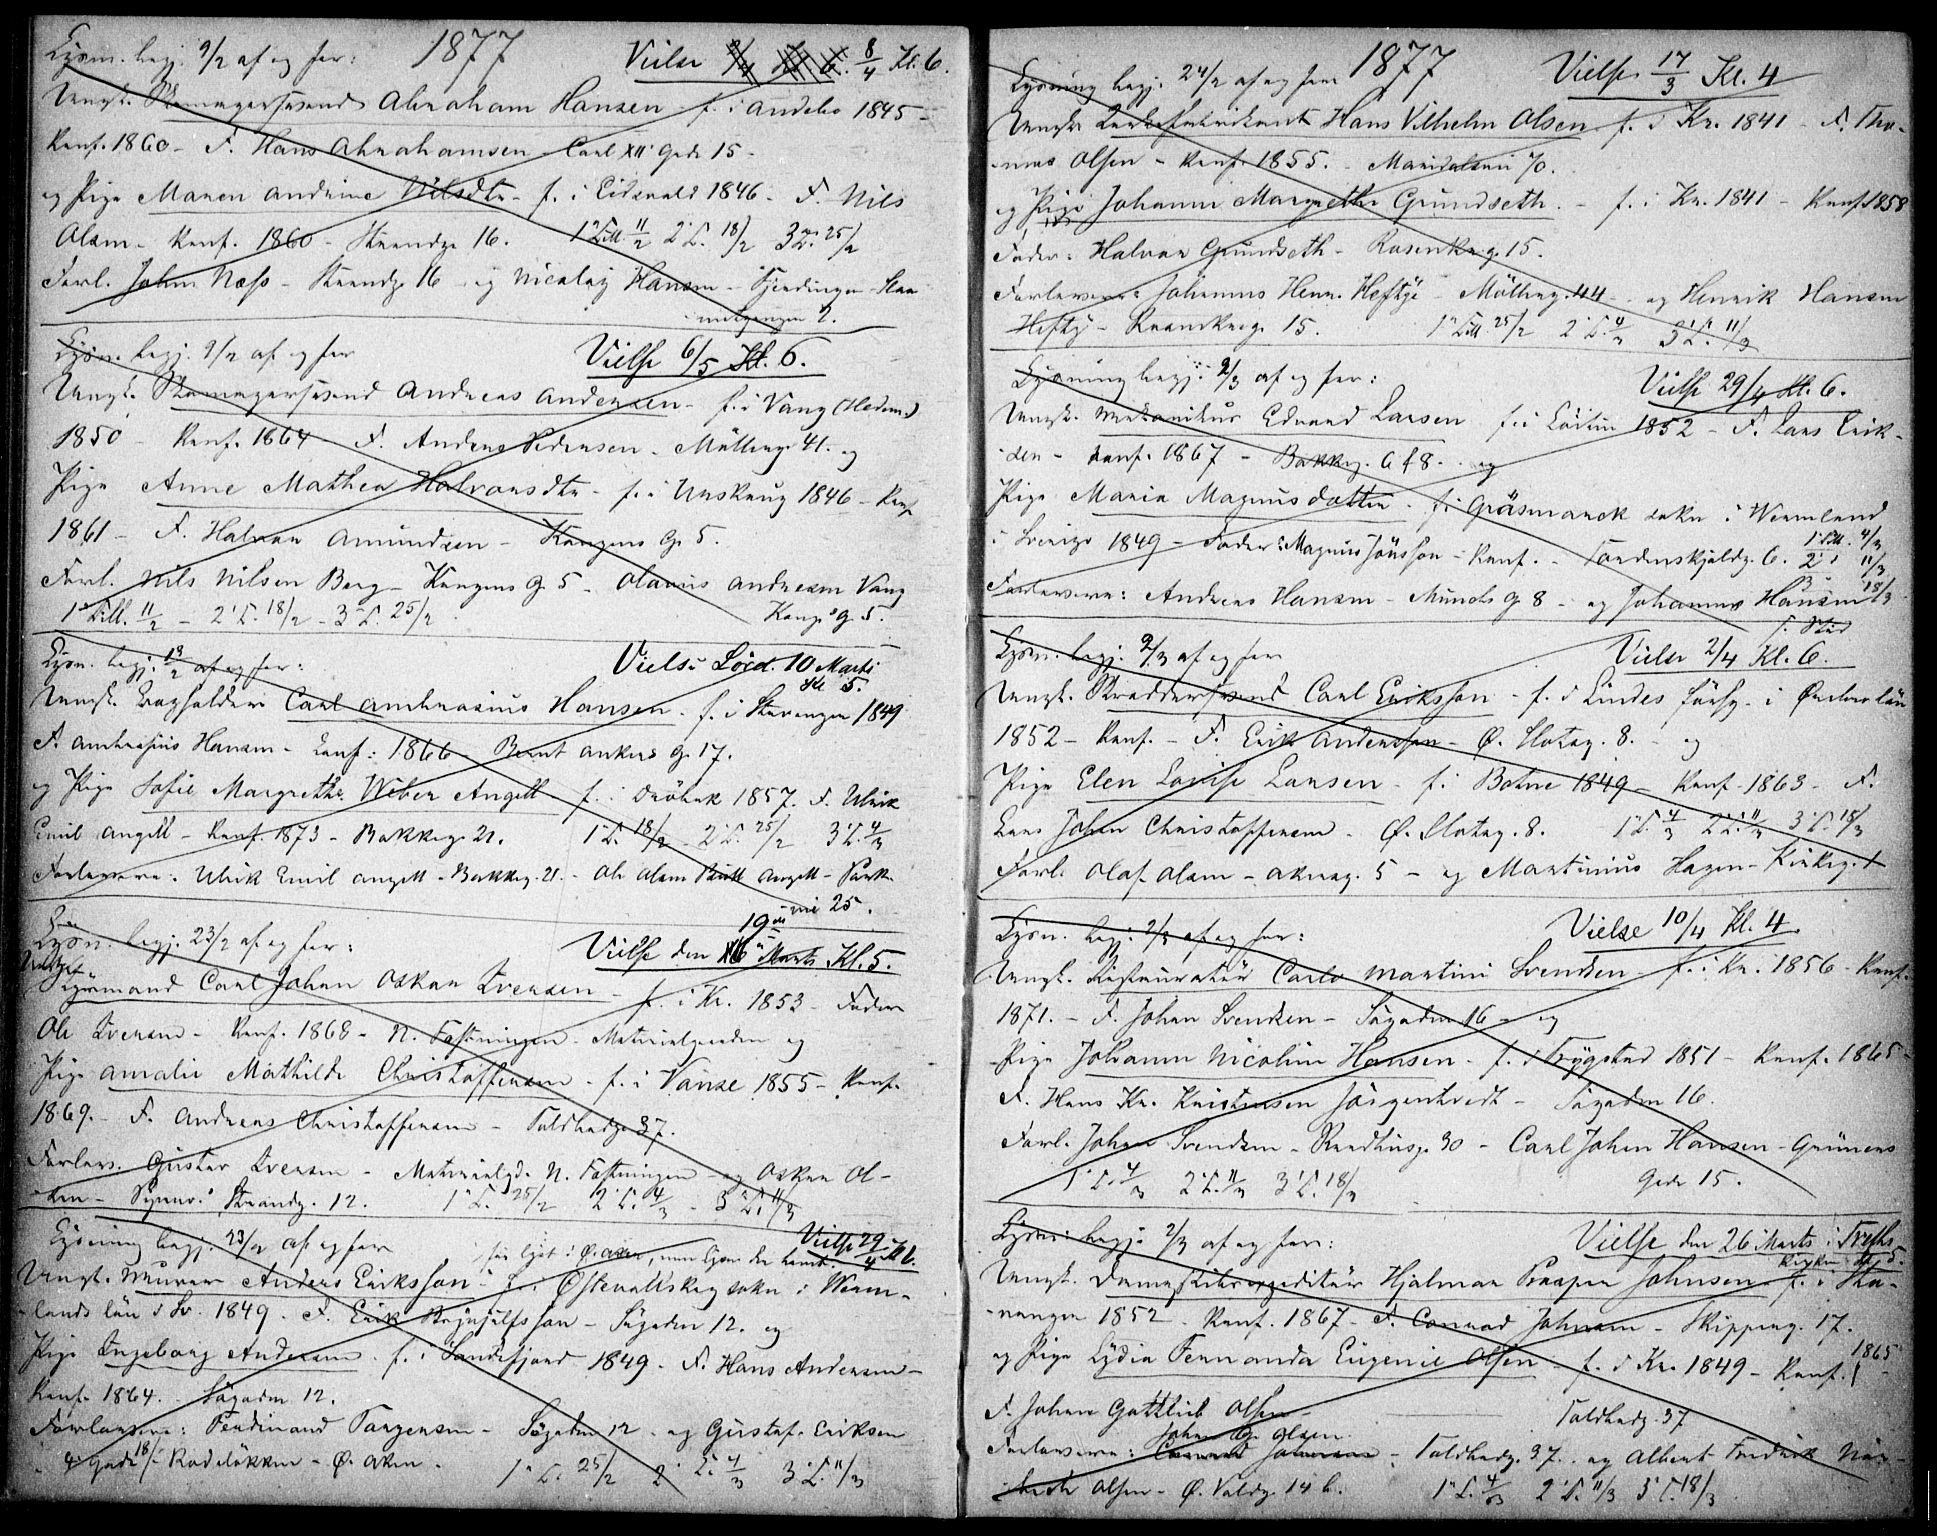 Lysn. begj. 9/2 af og for: 1877 Vielse 8/4 Kl. 6.
Ungk. Skomagersvend Abraham Hansen f. i Andebo 1845 -
Konf. 1860 - F. Hans Abrahamsen Carl XII Gade 15 -
og Pige Maren Andrine Nilsdtr - f. i Eidsvold 1846 - F. Nils
Olsen - Konf. 1860 - Strandg. 16. 1ste Till. 11/2 2 L. 18/2 3 L. 25/2
Forl. John Næss - Strandg. 16 og Nicolaj Hansen -
2.
Lysn. begj. 9/2 af og for Vielse 6/5 Kl. 6.
Ungk. Skomagersvend Andreas Andersen - f. i Vang (Hedem.)
1850 - Konf. 1864 - F. Anders Pedersen - Möllerg. 41. og
Pige Anne Mathea Halvorsdtr - f. i Urskoug 1846 - Konf.
1861 - F. Halvor Amundsen - Kongens G. 5.
Forl. Nils Nilsen Berg - Kongens G. 5 - Olavus Andresen Vang
1ste Till. 11/2 - 2 L. 18/2 - 3 L. 25/2 Kongs G. 5.
Lysn. begj. 13/2 af og for: Vielse Lörd. 10 Marts
Kl 5.
Ungk. Bogholder Carl Ambrosius Hansen - f. i Stavanger 1849
F. Ambrosius Hansen - Conf: 1866 - Bernt Ankers G. 17.
og Pige Sofie Margrethe Weber Angell f. i Dröbak 1857. F. Ulrik
Emil Angell - Konf. 1873 - Bakkeg. 21. 1 L. 18/2 - 2 L. 25/2 3 L. 4/3
Forlovere: Ulrik Emil Angell - Bakkeg. 21. - Ole Olsen Angell - Park-
vei 25.
19de
Lysn. begj. 23/2 af og for: Vielse den Marts Kl. 5.
Ungk. Carl Johan Oskar Iversen - f. i Kr. 1853 - Fader
Ole Iversen - Konf. 1868 - N. Fæstningen - Materialgaarden og
Pige Amalie Mathilde Christoffersen - f. i Vanse 1855 - Konf.
1869. - F. Andreas Christoffersen - Toldbodg. 37.
Forlov. Gustav Iversen - Materialgd. N. Fæstningen - og Oskar Ol-
sen - Strandg. 12. 1 L. 25/2 2 L. 4/3 - 3 L. 11/3
Lysning begj. 23/2 af og for Vielse 29/4 Kl 6.
Ungk. Murer Anders Eriksson - f. i Östevallskog sokn i Werm-
lands län i Sv. 1849. F. Erik - Sögaden 12. og
Pige Ingeborg Andersen f. i Sandefjord 1849. F. Hans Andersen -
Konf. 1864. Sögaden 12.
Forlovere: Ferdinand Torgersen - Sögaden 12 - og Gustaf Eriksen
Rodelökken - Ö. Aker. 1 L. 25/2 2 L. 4/3 3 L. 11/3
Lysning begj: 24/2 af og for 1877 Vielse 17/3 Kl. 4
Ungk. Hans Vilhelm Olsen f. i Kr. 1841 - F. Tho-
mas Olsen - Konf. 1855. - Maridalsvei 70.
og Pige Johanne Margrethe Grundseth - f. i Kr. 1841 - Konf. 1858
Fader: Halvor Grundseth - Rosenkrg. 15.
Forlovere: Johannes Henr. Heftye - Möllerg. 44 - og Henrik Hansen
Heftye - 15. 1ste Till 25/2 2 L. 4/3 3 L. 11/3
Lysning begj: 2/3 af og for: Vielse 29/4 Kl. 6.
Ungk. Mekanikus Edvard Larsen f. i Löiten 1852 - F. Lars Erik-
sen - Konf. 1867 - Bakkeg. 6 & 8. - og
Pige Maria Magnusdotter - f. i Gräsmarck sokn i Wermland
i Sverige 1849 - Fader: Magnus Jönsson - Konf. - Tordenskjoldg. 6. 1 Till. 4/3
2 L. 11/3
Forlovere: Andreas Hansen - Munchs G 8 - og Johannes Hansen 3 18/3
Lysn. begj. 2/3 af og for Vielse 2/4 Kl. 6.
Ungk. Skreddersvend Carl Eriksson - f. i Lindes förs. i Örebro län
1852 - Konf. - F. Erik Andersson - Ö. Slotsg. 8. - og
Pige Elen Lovise Larsen - f. i Botne 1849 - Konf. 1863 - F.
Lars Johan Christoffersen - Ö. Slotsg. 8. 1 L. 4/3 2 L. 11/3 3 L. 18/3
Forl. Olaf Olsen - Akersg. 5 - og Martinius Hagen - Kirkeg. 1
Lysn. begj. 2/3 af og for: Vielse 10/4 Kl. 4
Ungk. Restauratör Carlo Martini Svendsen - f. i Kr. 1856 - Konf.
1871. - F. Johan Svendsen - Sögaden 16 - og
Pige Johanne Nicoline Hansen - f. i Trygstad 1851 - Konf. 1865 -
F. Hans Kr. Kristensen Jörgentvedt - Sögaden 16.
Forl. Johan Svendsen - Raadhusg. 30 - Carl Johan Hansen - Grüners
1 L. 4/3 2 L. 11/3 3 L. 18/3 Gade 15.
Lysn: begj: 2/3 af og for: Vielse den 26 Marts i Trefks.
Kirken Kl. 5.
Ungk. Dampskibsexpeditör Hjalmar Johnsen f. i Sta-
vanger 1852 - Konf. 1867 - F. Conrad Johnsen - Skipperg. 17.
og Pige Lydia Fernanda Eugenie Olsen - f. i Kr. 1849 - Konf. 1865
F. Johan Gottlieb Olsen - Toldbodg. 37
Johan G. Olsen
Forlovere: Conrad Johnsen - Toldbodg. 37. og Albert Fredrik
Olsen - Ö. Voldg. 14 b. 1 L. 4/3 2 L. 11/3 3 L. 18/3